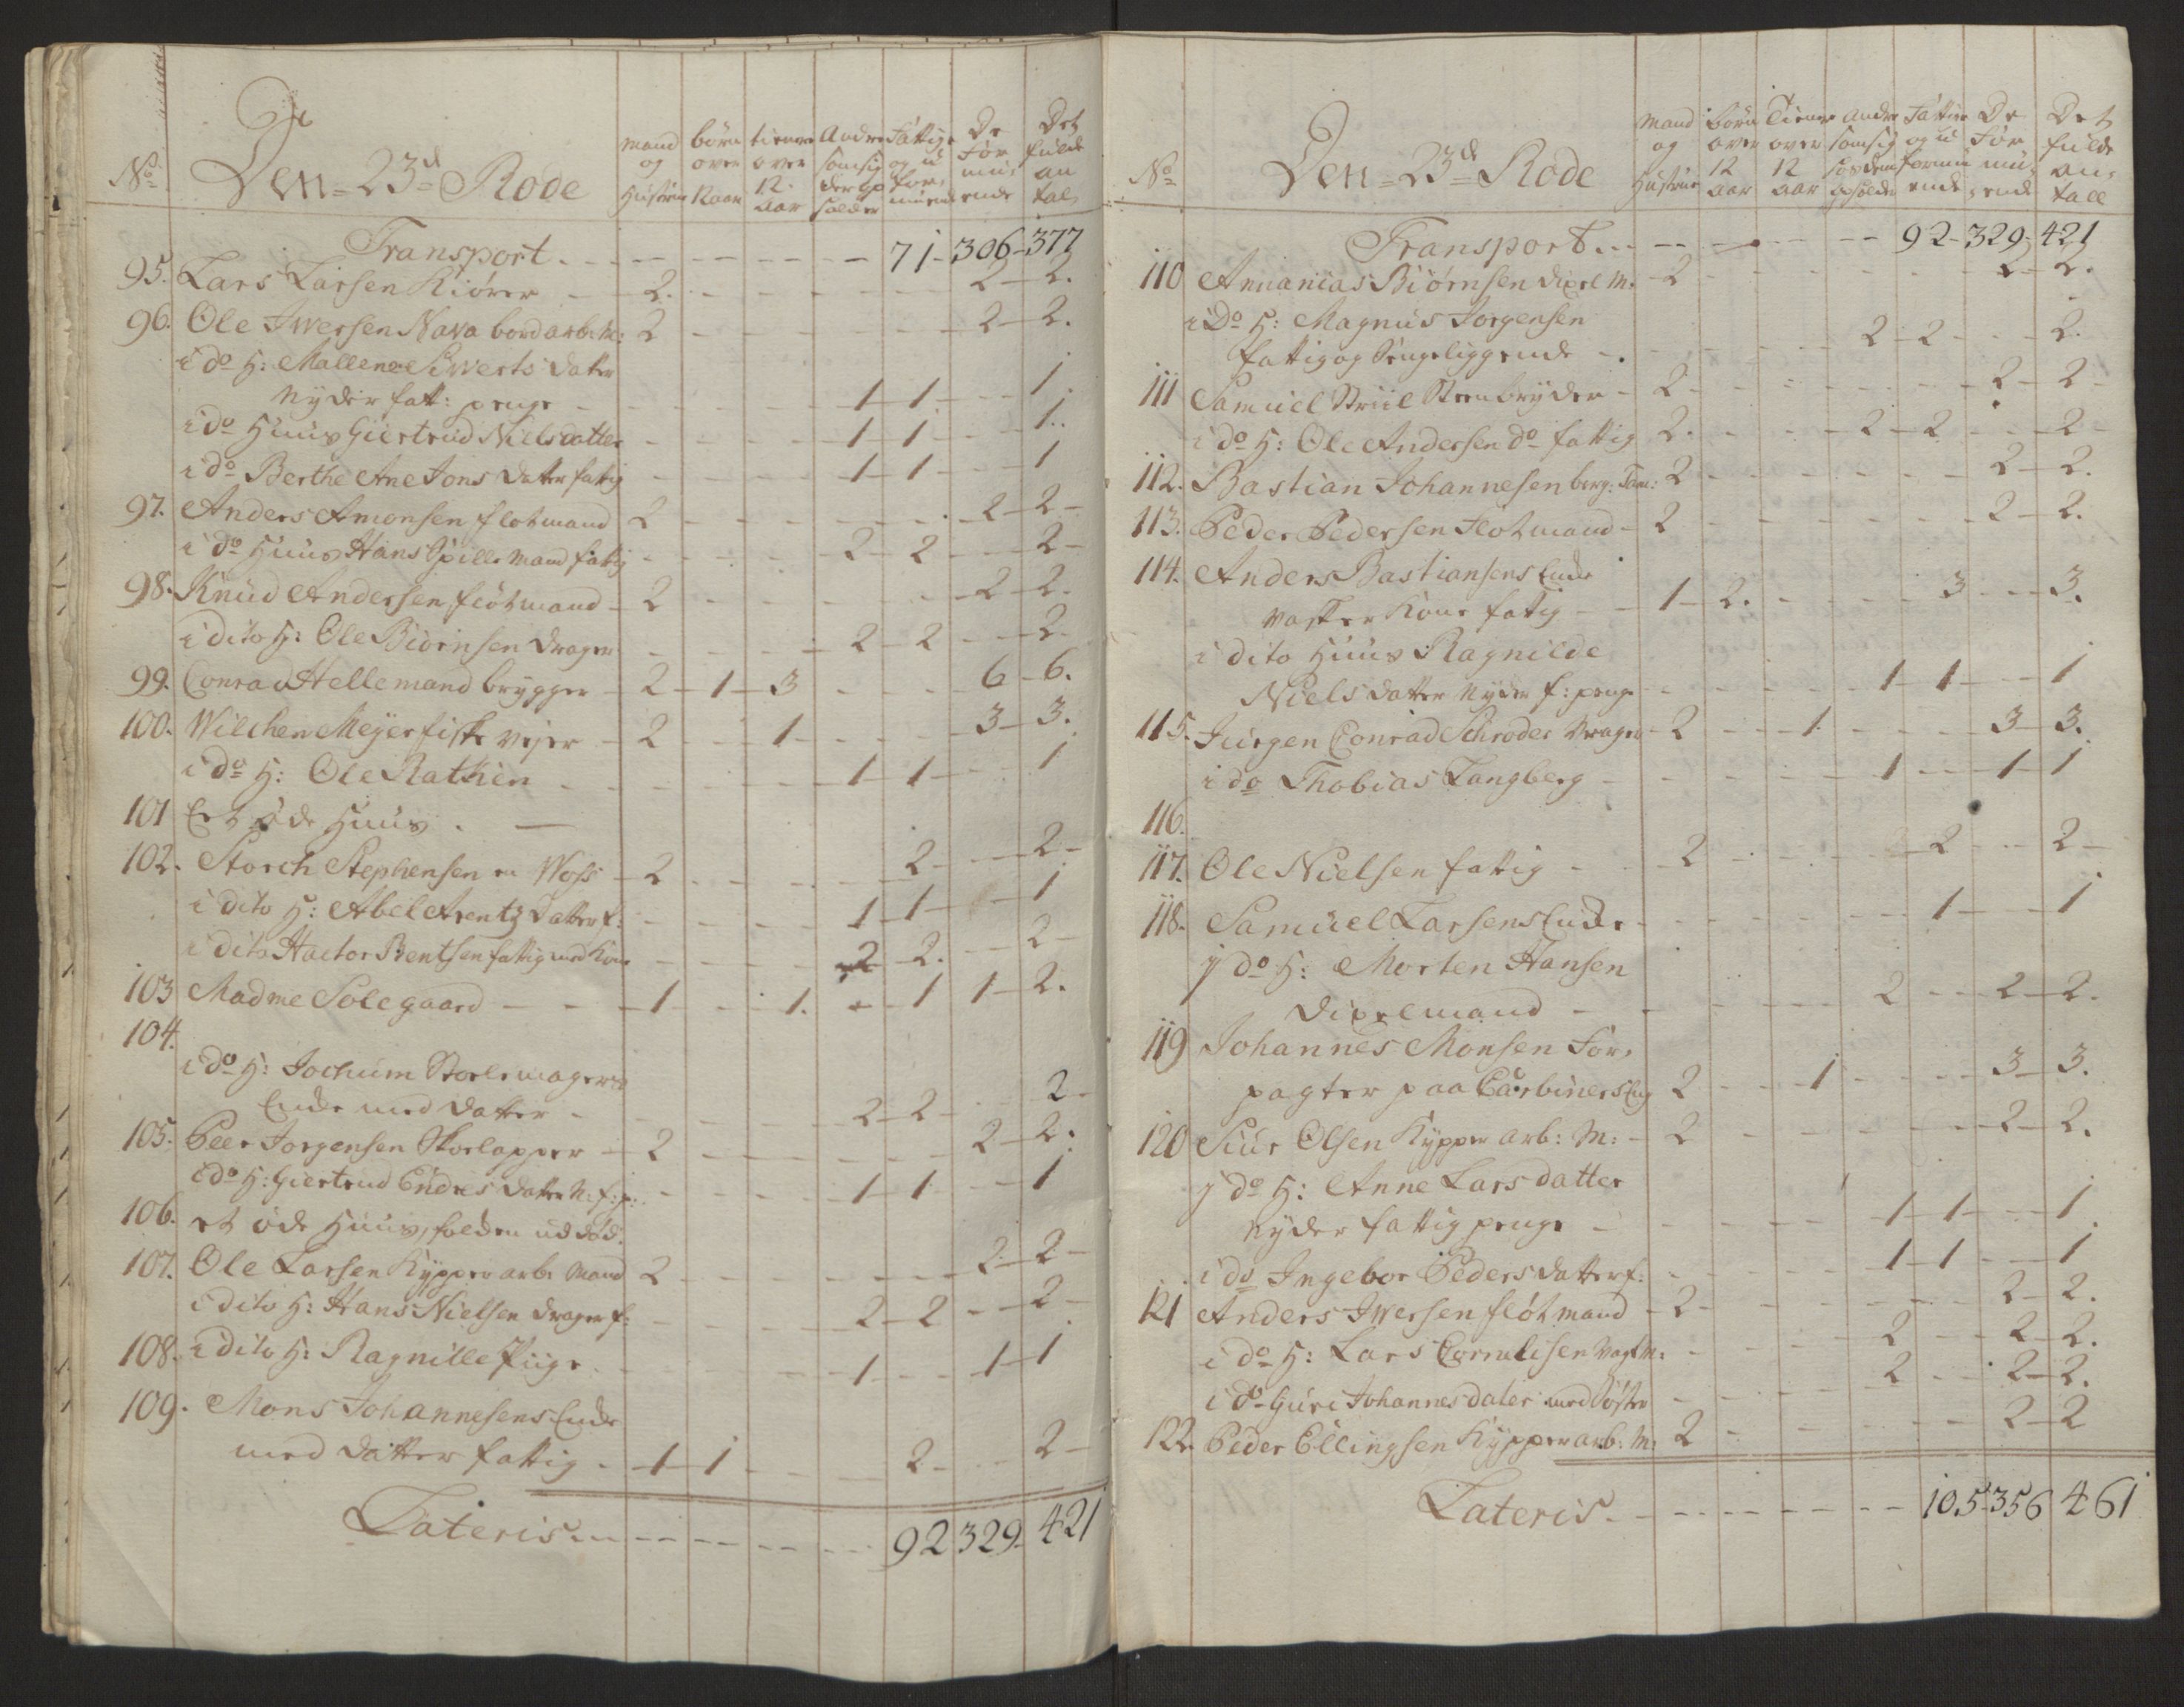 No. Den 23d Rode mand og Hustrue børn over 12 aar tienere over 12. aar Andre som sig der op holder Fattige og u for, muende De For mu, ende Det fulde an tal,
Transport. - - - - - - - 71 - 306 - 377
95. Lars Larsen Kiører - 2. - - - - 2 - 2.
96. Ole Iwersen Nava bord arb: M: 2 - - - - 2 - 2.
i do H: Mallene Siwerts dater
Nyder fatt: penge - - - - 1 - 1 - - 1.
i do Huus Giertrud Niels datter - - - 1 - 1 - - 1.
i do Berthe Ane Jons datter fattig - - - 1 - 1 - - 1
97. Anders Amonsen flotmand 2 - - - - 2 - 2 -
i do Huus Hans Spillemand fattig - - - 2 - 2 - - 2 -
98. Knud Andersen flotmand - 2 - - - - 2 - 2.
i dito H: Ole Biørnsen drager - - - 2 - 2 - - 2.
99. Conrad Hellemand brygger - 2 - 1 - 3 - - - 6 - 6.
100. Wilchen Meyer fiske vejer - 2 - - 1 - - - 3 - 3.
i do H: Ole Rathien - - - - 1 - 1 - - 1
101 Et øde Huus. -
102. Storch Stephensen en Woss - 2 - - - 2 - - 2 -
i dito H: Abel Arentz datter f: - - - 1 - 1 - - 1
i dito Hactor Bentsen fattig med Kone - - - 2 - 2. - - 2 -
103 Madme Solegaard - - - 1 - - 1. - 1 1 - 2.
104.
i do H: Jochum Stoelemagers
Enke med datter - - - - 2 - 2 - - 2 -
105. Peer Jorgensen Skoelapper - 2 - - - - 2 - 2.
i do H: Giertrud Endres datter N: f: p: - - - 1 - 1 - - 1
106. et øde Huus, folden uddød.
107. Ole Larsen Kypper arb: Mand 2 - - - - 2 - 2 -
i dito H: Hans Nielsen drager f: - - - 2 - 2 - - 2 -
108. i dito H: Ragnille Piige. - - - 1 - - 1 - 1
109. Mons Johannesens Enke
med datter fattig. - 1 - 1 - - - 2 - - 2 -
Lateris - - - - - - 92 329 - 421
No. Den 23d Rode Mand og Hustrue Børn over 12 aar Tienere over 12 aar andre som sig opholde Fattige og u formu ende De For mu, ende Det fulde an, tall
Transport - - - - - - 92 - 329 - 421
110 Annanias Biørnsen dixel M. - 2 - - - - - 2 - 2.
i Do H: Magnus Jorgensen
fattig og Sengeliggende - . - - - 2 - 2 - - 2.
111 Samuel Striil Steenbryder - 2 - - - - - 2 - 2 -
i do H: Ole Andersen do fattig 2. - - - 2 - 2 - - 2 -
112. Bastian Johannesen berg: Tam: 2 - - - - - 2 - 2.
113. Peder Pedersen Flotmand - 2 - - - - - 2 - 2.
114. Anders Bastiansens Enke
vasker Kone fattig - - 1 - 2. - - - 3 - - 3.
i dito Huus Ragnilde
Niels datter Nyder f: penge - - - - 1 - 1 - - 1
115. Jurgen Conrad Schroder Vrager - 2 - - 1. - - - 3 - 3.
i do Thobias Langberg - - - - 1 - - 1 - 1
116.
117. Ole Nielsen fattig - - 2 - - - - 2 - - 2 -
118. Samuel Larsens Enke - - - - - 1 - - 1
j do H: Morten Hansen
dixelmand - - - - 2 - - 2 - 2.
119 Johannes Monsen For,
pagter paa Corbiners Eng 2 - - 1 - - - 3 - 3.
120 Siur Olsen Kypper arb: M: - 2 - - - - - 2 - 2.
j do H: Anne Lars datter
Nyder fattig penge - - - - 1 - 1 - - 1
i do Ingebor Peders datter f: - - - 1 - 1 - - 1
121 Anders Iwersen flotmand - 2 - - - - - 2 - 2.
i do H: Lars Cornelisen vagt M: - - - 2 - - 2 - 2.
i do Guri Johannes dater med Søster - - - 2 - - 2 - 2.
122. Peder Ellingsen Kypper arb: M: 2 - - - - - 2 - 2
Lateris - - - - - - - 105 - 356 461